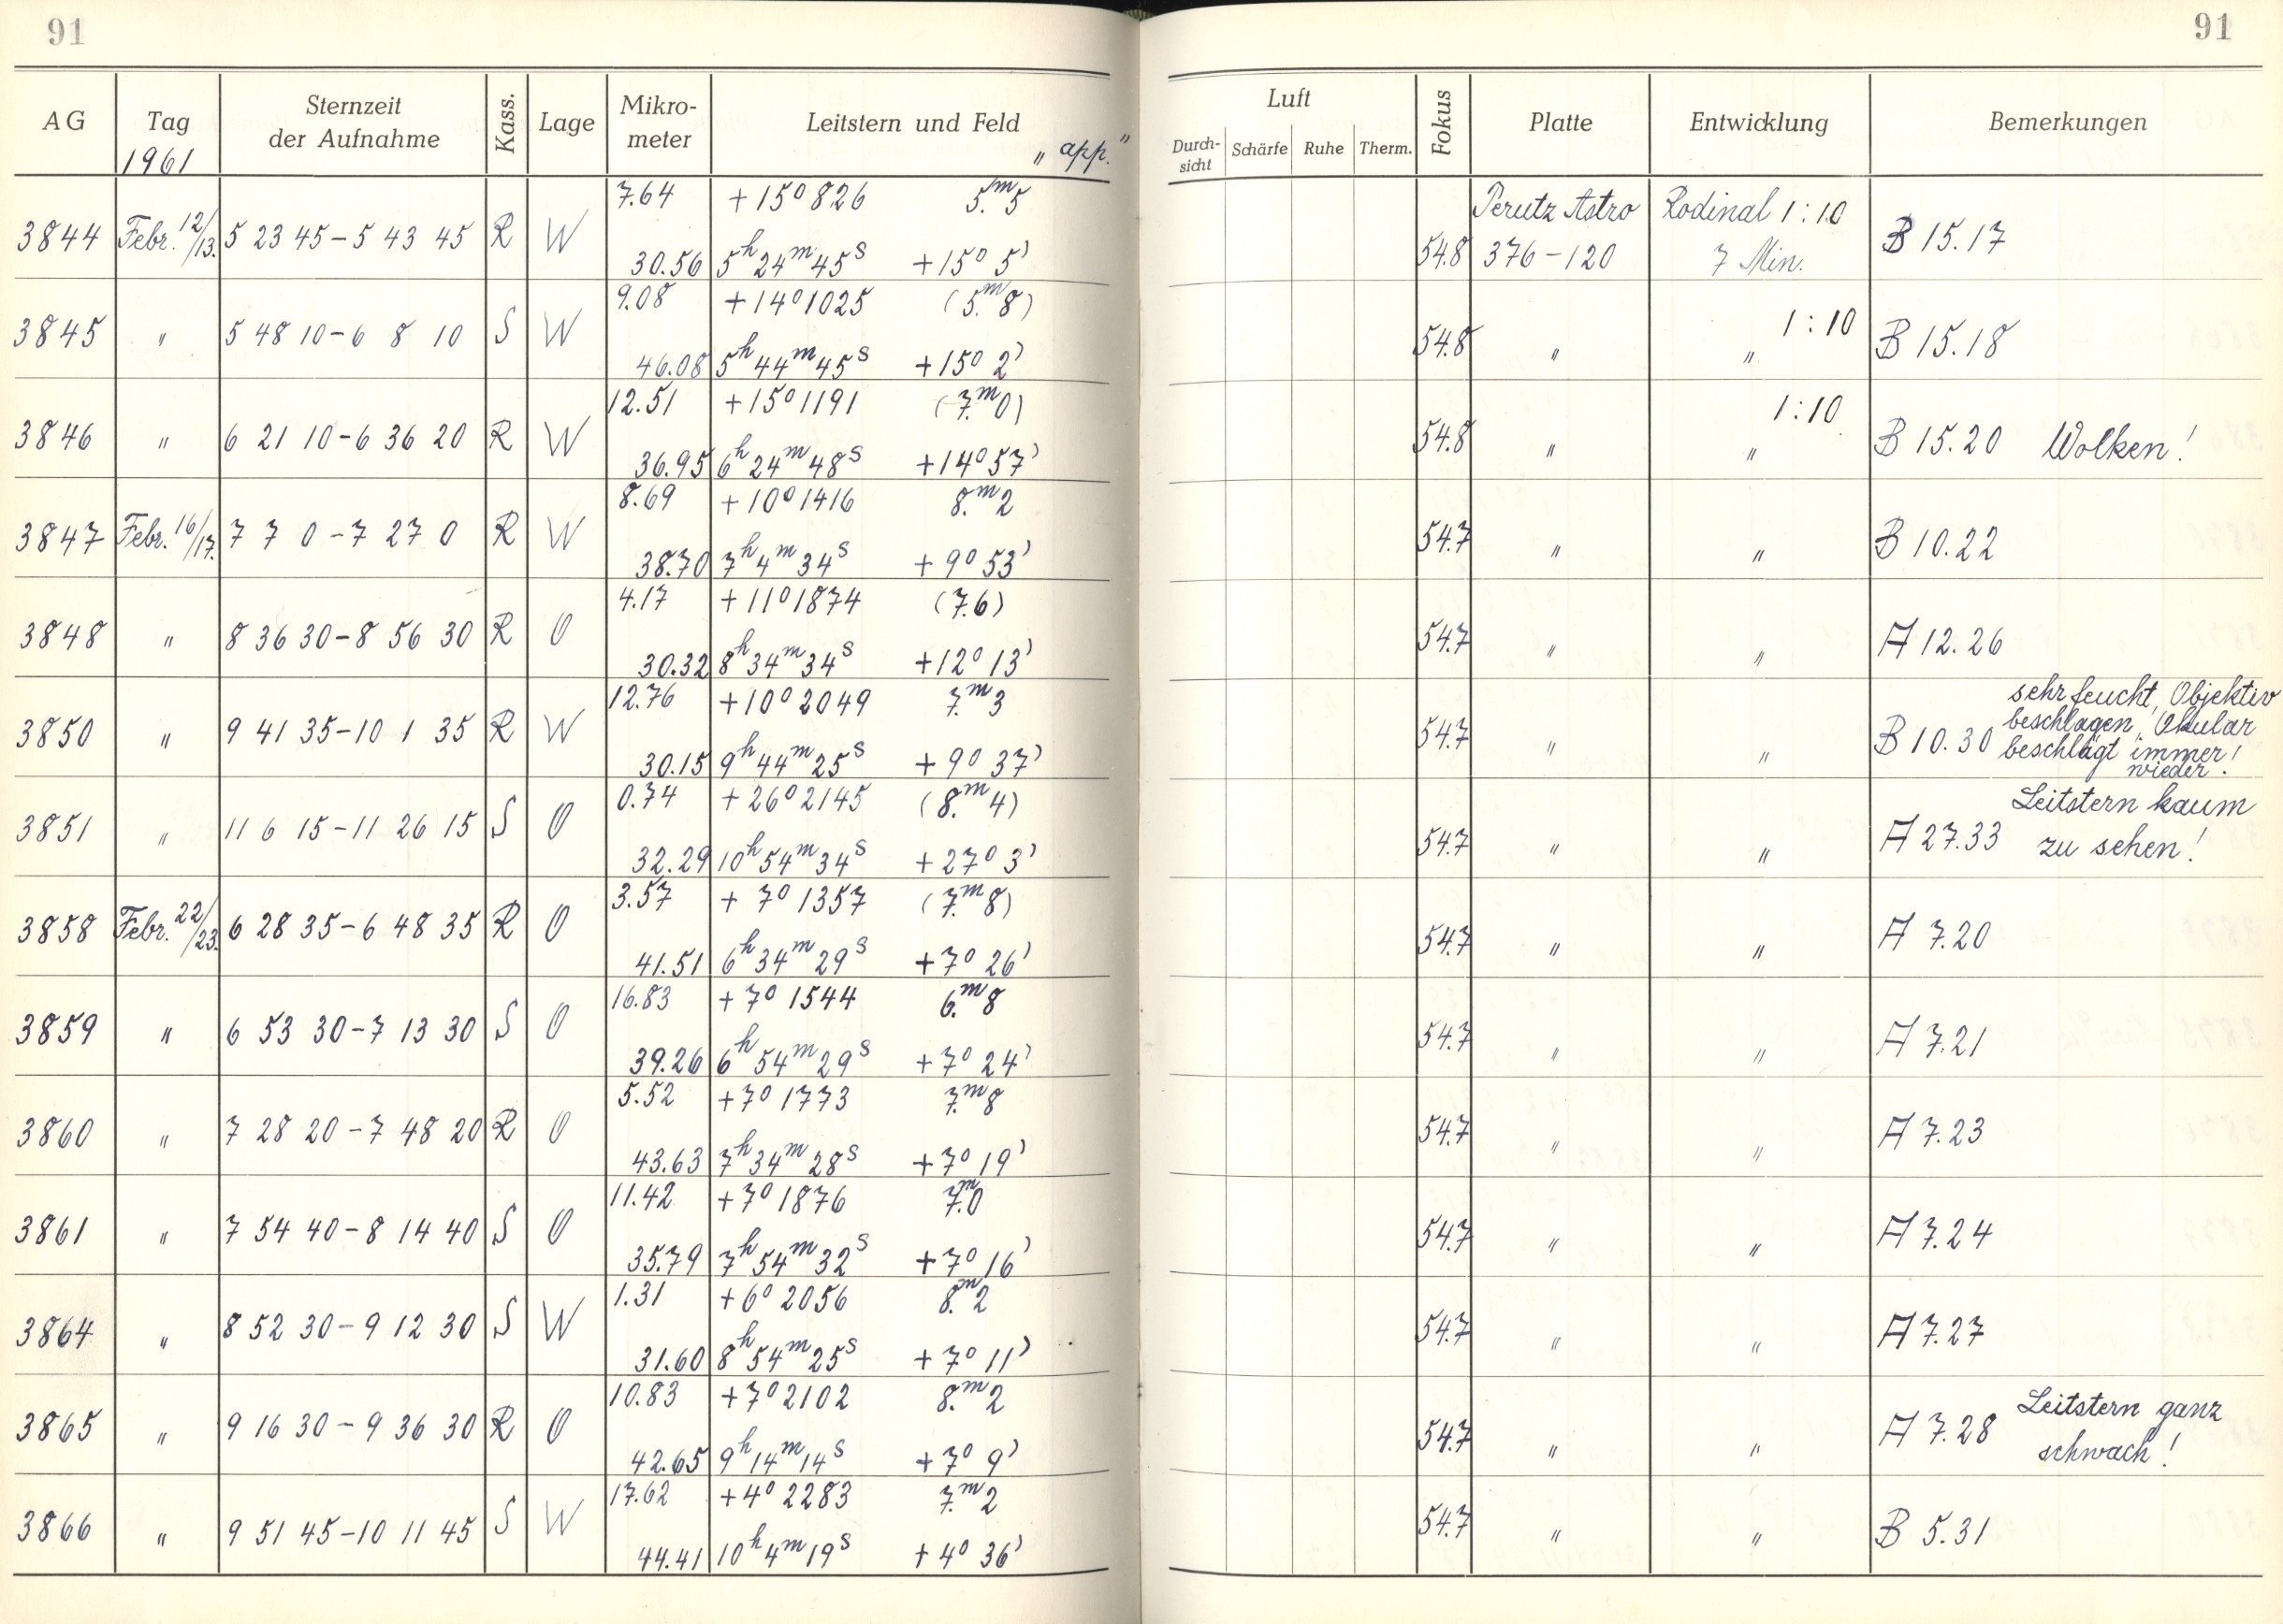 91
91
AG Tag Sternzeit der Aufnahme Kass. Lage Mikro-meter Leitstern und Feld
1961 „ app."
Luft Fokus Platte Entwicklung Bemerkungen
Durch-sicht Schärfe Ruhe Therm.
7.64 +15° 826 5.ᵐ5 Perutz Astro Rodinal 1:10
3844 Febr. 12/13. 5 23 45 – 5 43 45 R W 54.8 376–120 7 Min. B 15.17
30.56 5ʰ 24ᵐ 45ˢ +15° 5'
9.08 +14° 1025 (5.ᵐ8) 1:10
3845 " 5 48 10 – 6 8 10 S W 54.8 " " B 15.18
46.08 5ʰ 44ᵐ 45ˢ +15° 2'
12.51 +15° 1191 (7.ᵐ0) 1:10
3846 " 6 21 10 – 6 36 20 R W 54.8 " " B 15.20 Wolken!
36.95 6ʰ 24ᵐ 48ˢ +14° 57'
8.69 +10° 1416 8.ᵐ2
3847 Febr. 16/17. 7 7 0 – 7 27 0 R W 54.7 " " B 10.22
38.70 7ʰ 4ᵐ 34ˢ + 9° 53'
4.17 +11° 1874 (7.6)
3848 " 8 36 30 – 8 56 30 R O 54.7 " " A 12.26
30.32 8ʰ 34ᵐ 34ˢ +12° 13'
12.76 +10° 2049 7.ᵐ3 sehr feucht, Objektiv
beschlagen, Okular
3850 " 9 41 35 – 10 1 35 R W 54.7 " " B 10.30 beschlägt immer
wieder!
30.15 9ʰ 44ᵐ 25ˢ + 9° 37'
0.74 +26° 2145 (8.ᵐ4) Leitstern kaum
3851 " 11 6 15 – 11 26 15 S O 54.7 " " A 27.33 zu sehen!
32.29 10ʰ 54ᵐ 34ˢ +27° 3'
3.57 + 7° 1357 (7.ᵐ8)
3858 Febr. 22/23. 6 28 35 – 6 48 35 R O 54.7 " " A 7.20
41.51 6ʰ 34ᵐ 29ˢ +7° 26'
16.83 +7° 1544 6.ᵐ8
3859 " 6 53 30 – 7 13 30 S O 54.7 " " A 7.21
39.26 6ʰ 54ᵐ 29ˢ +7° 24'
5.52 +7° 1773 7.ᵐ8
3860 " 7 28 20 – 7 48 20 R O 54.7 " " A 7.23
43.63 7ʰ 34ᵐ 28ˢ +7° 19'
11.42 +7° 1876 7.ᵐ0
3861 " 7 54 40 – 8 14 40 S O 54.7 " " A 7.24
35.79 7ʰ 54ᵐ 32ˢ +7° 16'
1.31 +6° 2056 8.ᵐ2
3864 " 8 52 30 – 9 12 30 S W 54.7 " " A 7.27
31.60 8ʰ 54ᵐ 25ˢ +7° 11'
10.83 +7° 2102 8.ᵐ2 Leitstern ganz
3865 " 9 16 30 – 9 36 30 R O 54.7 " " A 7.28 schwach!
42.65 9ʰ 14ᵐ 14ˢ +7° 9'
17.62 +4° 2283 7.ᵐ2
3866 " 9 51 45 – 10 11 45 S W 54.7 " " B 5.31
44.41 10ʰ 4ᵐ 19ˢ + 4° 36'